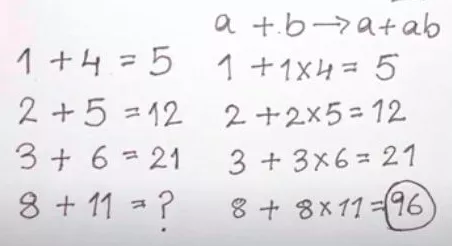 a + b → a + ab
1 + 4 = 5
1 + 1×4 = 5
2 + 5 = 12
2 + 2×5 = 12
3 + 6 = 21
3 + 3×6 = 21
8 + 11 = ?
8 + 8×11 = 96